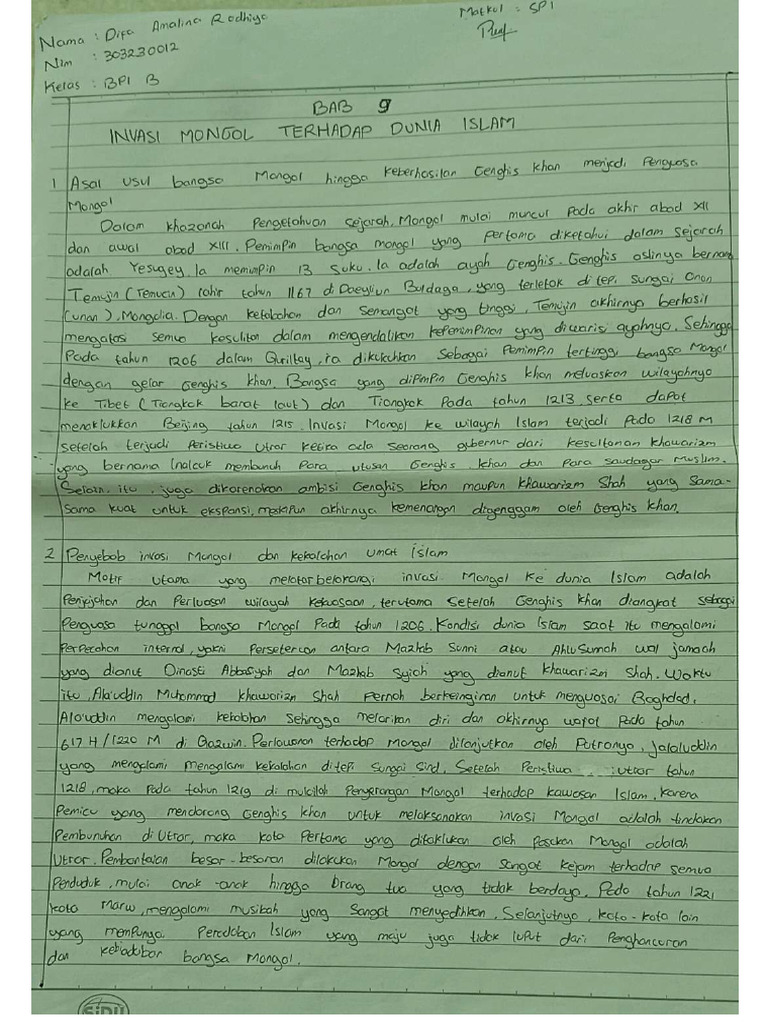 Nama : Difa Amalina Rodhiya
Matkul : SPI
Nim : 303230012
Kelas : BPI B
BAB 9
INVASI MONGOL TERHADAP DUNIA ISLAM
1 Asal usul bangsa Mongol hingga keberhasilan Genghis khan menjadi Penguasa
Mongol
Dalam khazanah Pengetahuan sejarah, Mongol mulai muncul Pada akhir abad XII
dan awal abad XIII. Pemimpin bangsa mongol yang pertama diketahui dalam sejarah
adalah Yesugey. Ia memimpin 13 suku. Ia adalah ayah Genghis. Genghis aslinya bernama
Temujin (Temucin) lahir tahun 1167 di Daeyliun Buldaga, yang terletak di tepi sungai Onan
(unan), Mongolia. Dengan ketabahan dan semangat yang tinggi, Temujin akhirnya berhasil
mengatasi semua kesulitan dalam mengendalikan kepemimpinan yang diwarisi ayahnya. Sehingga
Pada tahun 1206 dalam Quriltay, ia dikukuhkan sebagai Pemimpin tertinggi bangsa Mongol
dengan gelar Genghis khan. Bangsa yang dipimpin Genghis khan meluaskan wilayahnya
ke Tibet (Tiongkok barat laut) dan Tiongkok Pada tahun 1213 serta dapat
menaklukkan Beijing tahun 1215. Invasi Mongol ke wilayah Islam terjadi Pada 1218 M
setelah terjadi Peristiwa Utrar ketika ada seorang gubernur dari kesultanan khawarizm
yang bernama Inalcuk membunuh Para utusan Genghis khan dan Para saudagar Muslim.
Selain itu, juga dikarenakan ambisi Genghis khan maupun Khawarizm Shah yang sama-
sama kuat untuk ekspansi, meskipun akhirnya kemenangan digenggam oleh Genghis khan.
2 Penyebab invasi Mongol dan kekalahan umat Islam
Motif utama yang melatarbelakangi invasi Mongol Ke dunia Islam adalah
Penjajahan dan Perluasan wilayah kekuasaan, terutama setelah Genghis khan diangkat sebagai
Penguasa tunggal bangsa Mongol Pada tahun 1206. Kondisi dunia Islam saat itu mengalami
Perpecahan internal, yakni Perseteruan antara Mazhab Sunni atau Ahlu Sunnah wal jamaah
yang dianut Dinasti Abbasiyah dan Mazhab Syiah yang dianut Khawarizm Shah. Waktu
itu, Ala'uddin Muhammad khawarizm Shah Pernah berkeinginan untuk menguasai Baghdad.
Ala'uddin mengalami kekalahan Sehingga melarikan diri dan akhirnya wafat Pada tahun
617 H/1220 M di Qazwin. Perlawanan terhadap Mongol dilanjutkan oleh Putranya, Jalaluddin
yang mengalami mengalami kekalahan di tepi Sungai Sind. Setelah Peristiwa Utrar tahun
1218, maka Pada tahun 1219 di mulailah Penyerangan Mongol terhadap kawasan Islam. Karena
Pemicu yang mendorong Genghis khan untuk melaksanakan invasi Mongol adalah tindakan
Pembunuhan di Utrar, maka kota Pertama yang ditaklukan oleh Pasukan Mongol adalah
Utrar. Pembantaian besar-besaran dilakukan Mongol dengan sangat kejam terhadap semua
Penduduk, mulai anak-anak hingga orang tua yang tidak berdaya. Pada tahun 1221
kota Marw, mengalami musibah yang sangat menyedihkan. Selanjutnya, kota-kota lain
yang mempunyai Peradaban Islam yang maju juga tidak luput dari Penghancuran
dan kebiadaban bangsa Mongol.
SIDU